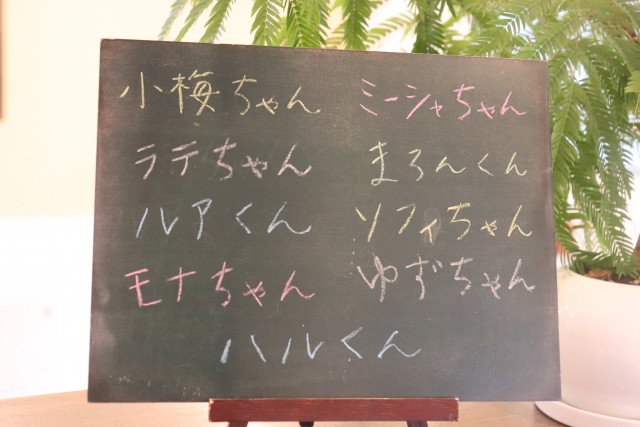 小梅ちゃん ミーシャちゃん
ラテちゃん まろんくん
ルアくん ソフィちゃん
モナちゃん ゆずちゃん
ハルくん